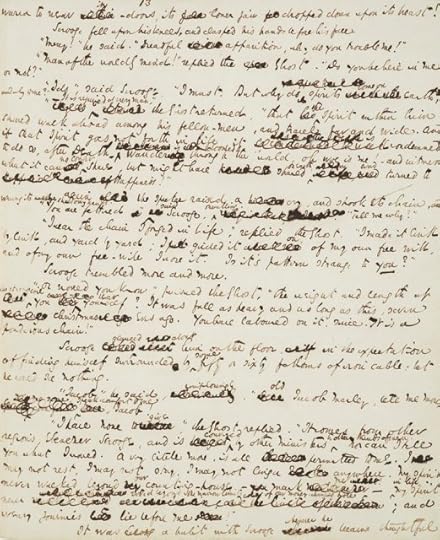 13
warm to wear in-doors, its lower jaw dropped down upon its breast!
Scrooge fell upon his knees, and clasped his hands before his face
"Mercy!" he said. "Dreadful apparition, why do you trouble me!"
"Man of the worldly mind!" replied the Ghost. "Do you believe in me
or not?"
"I do," said Scrooge. "I must. But why do spirits
"It is required of every man," the Ghost returned, "that the spirit within him
should walk abroad among his fellow-men, and travel far and wide. And
if that spirit goes not forth in life, it is condemned
to do so after death. It is doomed to wander through the world, oh woe is me, and witness
what it cannot share, but might have shared and turned to
happiness!"
the spectre raised a cry, and shook its chain, and
wrung its
"You are fettered," said Scrooge, trembling. "Tell me why?"
"I wear the chain I forged in life," replied the Ghost. "I made it link
by link, and yard by yard; I girded it on of my own free will,
and of my own free-will I wore it. Is its pattern strange to you?"
Scrooge trembled more and more.
"Or would you know," pursued the Ghost, "the weight and length of
the you bear yourself? It was full as heavy and as long as this, seven
Christmas eves ago. You have laboured on it, since. It is a
ponderous chain!"
Scrooge glanced about him on the floor, in the expectation
of finding himself surrounded by some fifty or sixty fathoms of iron cable: but
he could see nothing.
"Jacob," he said, imploringly. "old Jacob Marley, tell me more
Jacob
"I have none to give," the Ghost replied. "It comes from other
regions, Ebenezer Scrooge, and is conveyed by other ministers, to other kinds of men. Nor can I tell
you what I would. A very little more, is all permitted to me. I
may not rest, I may not stay, I may not linger anywhere. My spirit
never walked beyond our counting-house mark me in life my spirit
never; and
weary journies lie before me
It was a habit with Scrooge whenever he became thoughtful